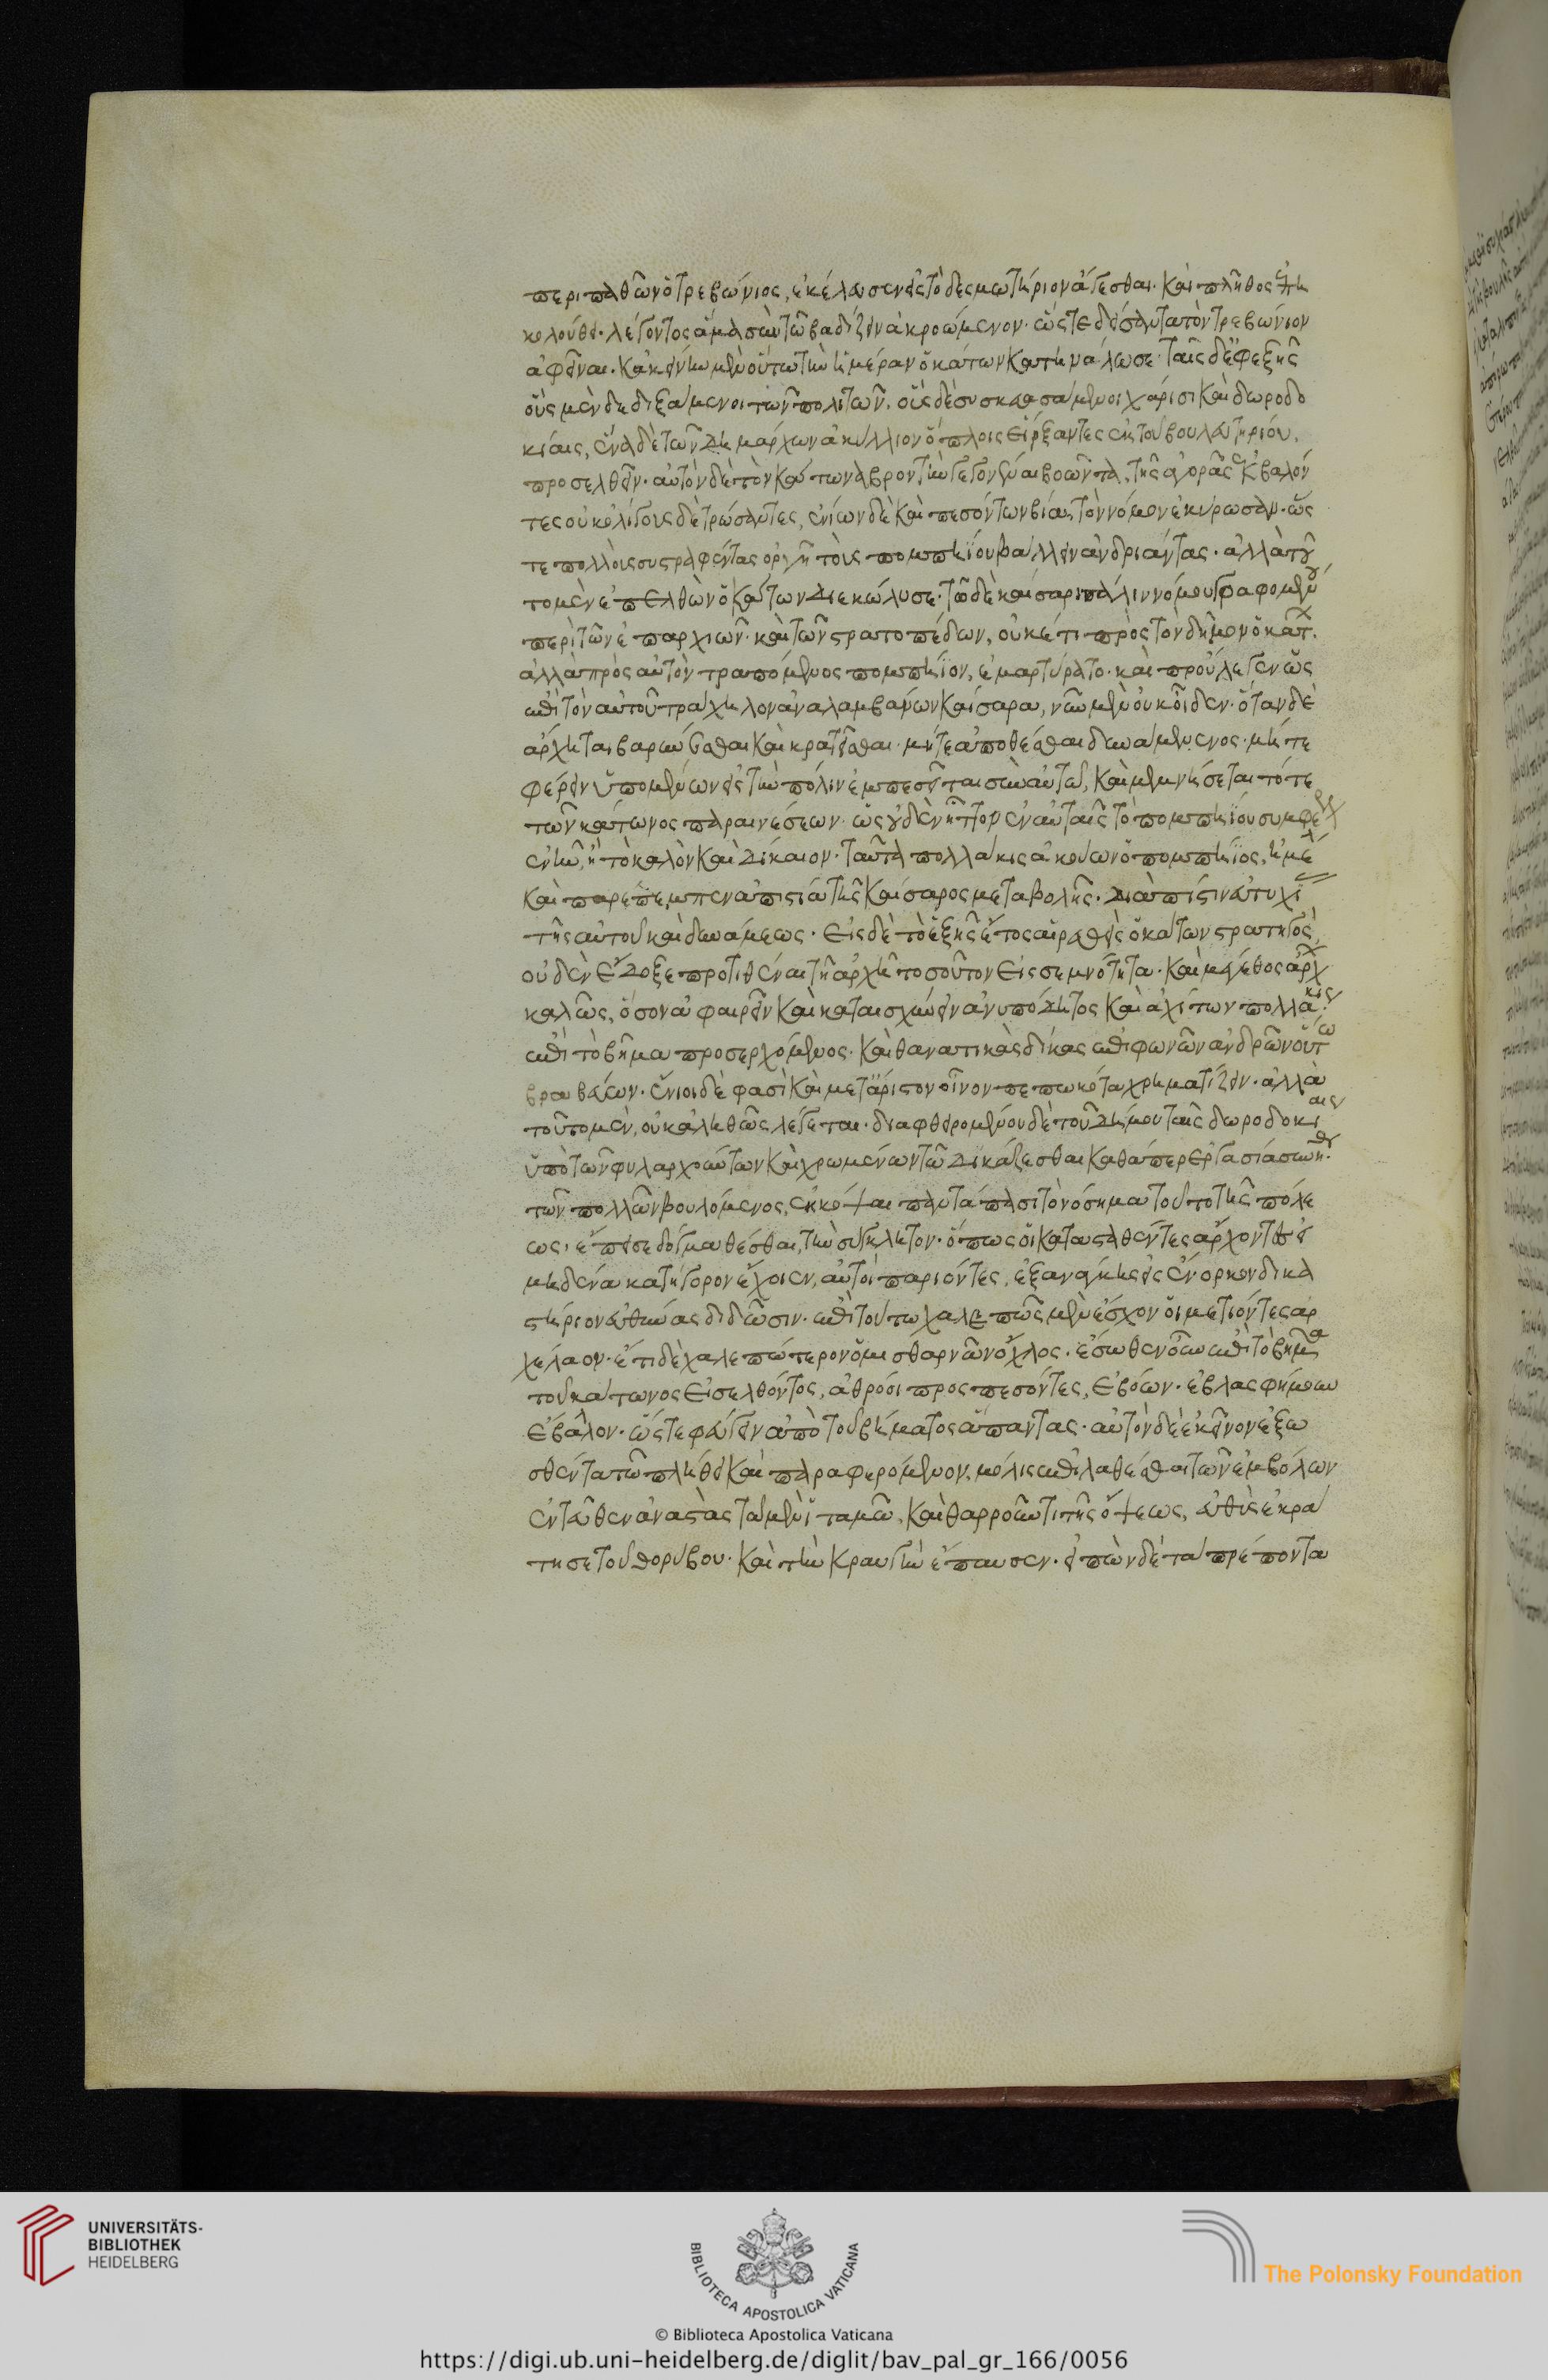 περιπαθῶν ὁ τρεβώνιος, ἐκέλευσεν εἰς τὸ δεσμωτήριον ἄγεσθαι· καὶ πλῆθος ἐπη
κολούθει· λέγοντος ἅμα σὺν τῶ βαδίζειν ἀκροώμενον· ὥστε δείσαντα τὸν τρεβώνιον
ἀφεῖναι. κἀκείνην μὲν οὕτω τὴν ἡμέραν ὁ κάτων κατηνάλωσε· ταῖς δ' ἐφεξῆς
οὓς μὲν δεδιξάμενοι τῶν πολιτῶν. οὓς δὲ συσκευασάμενοι χάρισι καὶ δωροδο
κίαις, ἕνα δὲ τῶν δημάρχων ἀκύλλιον ὅπλοις εἴρξαντες ἐκ τοῦ βουλευτηρίου,
προσελθεῖν· αὐτὸν δὲ τὸν κάτωνα βροντὴν γεγονέναι βοῶντα, τῆς ἀγορᾶς ἐκβαλόν
τες οὐκ ὀλίγους δὲ τρώσαντες, ἐνίων δὲ καὶ πεσόντων βία, τὸν νόμον ἐκύρωσαν· ὥς
τε πολλοὺς συστραφέντας ὀργῆ τοὺς πομπηΐου βάλλειν ἀνδριάντας· ἀλλὰ τοῦ
το μὲν ἐπελθὼν ὁ κάτων διεκώλυσε· τῶ δὲ καίσαρι πάλιν νόμου γραφομένου
περὶ τῶν ἐπαρχιῶν καὶ τῶν στρατοπέδων, οὐκέτι πρὸς τὸν δῆμον ὁ κάτ.
ἀλλὰ πρὸς αὐτὸν τραπόμενος πομπήϊον, ἐμαρτύρατο· καὶ προὔλεγεν ὡς
ἐπὶ τὸν αὐτοῦ τράχηλον ἀναλαμβάνων καίσαρα, νῦν μὲν οὐκ οἶδεν· ὅταν δὲ
ἄρχηται βαρύνεσθαι καὶ κρατεῖσθαι· μήτε ἀποθέσθαι δυνάμενος· μήτε
φέρειν ὑπομένων εἰς τὴν πόλιν ἐμπεσεῖται σὺν αὐτῶ, καὶ μεμνήσεται τότε
τῶν κάτωνος παραινέσεων· ὡς οὐδὲν ἧττον ἐν αὐταῖς τὸ πομπηΐου συμφέρ
ἐνῆν, ἢ τὸ καλὸν καὶ δίκαιον· ταῦτα πολλάκις ἀκούων ὁ πομπήϊος, ἠμέλ
καὶ παρέπεμπεν ἀπιστία τῆς καίσαρος μεταβολῆς· διὰ πίστιν εὐτυχί
τῆς αὐτοῦ καὶ δυνάμεως· εἰς δὲ τὸ ἑξῆς ἔτος αἱρεθεὶς ὁ κάτων στρατηγὸς
οὐδὲν ἔδοξε προστιθέναι τῆ ἀρχῆ τοσοῦτον εἰς σεμνότητα· καὶ μέγεθος ἄρχ
καλῶς, ὅσον ἀφαιρεῖν καὶ καταισχύνειν ἀνυπόδητος καὶ ἀχίτων πολλάκις
ἐπὶ τὸ βῆμα προσερχόμενος· καὶ θανατικὰς δίκας ἐπιφωνῶν ἀνδρῶν οὕτω
βραβεύων· ἔνιοι δὲ φασὶ καὶ μετ' ἄριστον οἶνον πεπωκότα χρηματίζειν· ἀλλὰ
τοῦτο μὲν, οὐκ ἀληθῶς λέγεται· διαφθειρομένου δὲ τοῦ δήμου ταῖς δωροδοκίαις
ὑπὸ τῶν φιλαρχούντων καὶ χρωμένων τῶ δεκάζεσθαι καθάπερ ἐργασία συνήθει
τῶν πολλῶν βουλόμενος, ἐκκόψαι παντάπασι τὸ νόσημα τοῦτο τῆς πόλε
ως, ἔπεισε δόγμα θέσθαι, τὴν σύγκλητον· ὅπως οἱ κατασταθέντες ἄρχοντες εἰ
μηδένα κατήγορον ἔχοιεν, αὐτοὶ παριόντες, ἐξ ἀνάγκης εἰς ἔνορκον δικα
στήριον εὐθύνας διδῶσιν· ἐπὶ τούτω χαλεπῶς μὲν ἔσχον οἱ μετιόντες ἀρ
χὰς λαον· ἔτι δὲ χαλεπώτερον ὁ μισθαρνῶν ὄχλος· ἕωθεν οὖν ἐπὶ τὸ βῆμα
τοῦ κάτωνος εἰσελθόντος, ἀθρόοι προσπεσόντες, ἐβόων· ἐβλασφήμουν
ἔβαλλον· ὥστε φεύγειν ἀπὸ τοῦ βήματος ἅπαντας· αὐτὸν δὲ ἐκεῖνον ἐξω
σθέντα τῶ πλήθει καὶ παραφερόμενον, μόλις ἐπιλαβέσθαι τῶν ἐμβόλων
ἐντεῦθεν ἀναστὰς τὰ μὲν ἰταμῶ, καὶ θαρροῦντι τῆς ὄψεως, εὐθὺς ἐκρά
τησε τοῦ θορύβου· καὶ τὴν κραυγὴν ἔπαυσεν· εἰπὼν δὲ τὰ πρέποντα
UNIVERSITÄTS-
BIBLIOTHEK
HEIDELBERG
BIBLIOTECA APOSTOLICA VATICANA
The Polonsky Foundation
© Biblioteca Apostolica Vaticana
https://digi.ub.uni-heidelberg.de/diglit/bav_pal_gr_166/0056